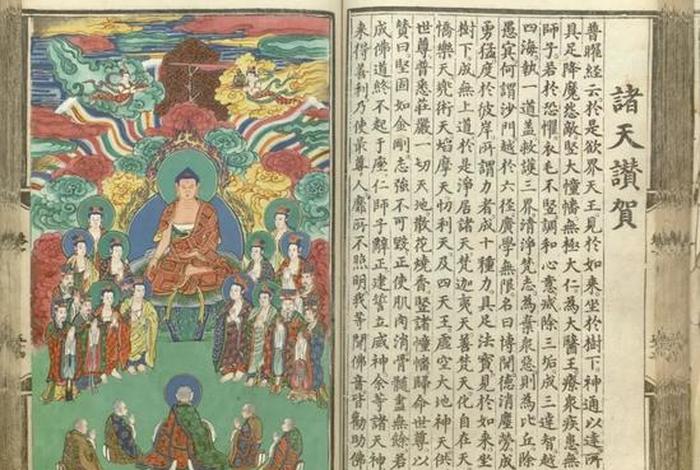 諸天讚賀
普曜經云於是欲界天王見於如來坐於樹下神通以達所
具足降魔怨敵堅大幢幡無極大仁為大醫王療衆疾患無
師子若於恐懼衣毛不竪調和心意滅除三垢成三達智越
四海執一道盖救護三界清淨梵志為棄衆惡則為比丘除
愚冥何謂沙門越於六徑廣學無限名曰博聞德消塵勞成
勇猛度於彼岸所謂力者成十種力具足法寶見於如來坐
樹下成無上道於是淨居諸天梵迦夷天善梵天化自在天
憍樂天兜術天焰摩天忉利天及四天王虛空大地神天供
世尊普悉莊嚴一切天地散花燒香竪諸幢幡歸命世尊以
贊曰堅固如金剛志強不可毀正使肌肉消骨髓盡無餘若
成佛道終不起于座仁師子辭正建誓立威神余等諸天神
來得善利乃使最尊人靡所不照明我等聞佛音皆勸助佛